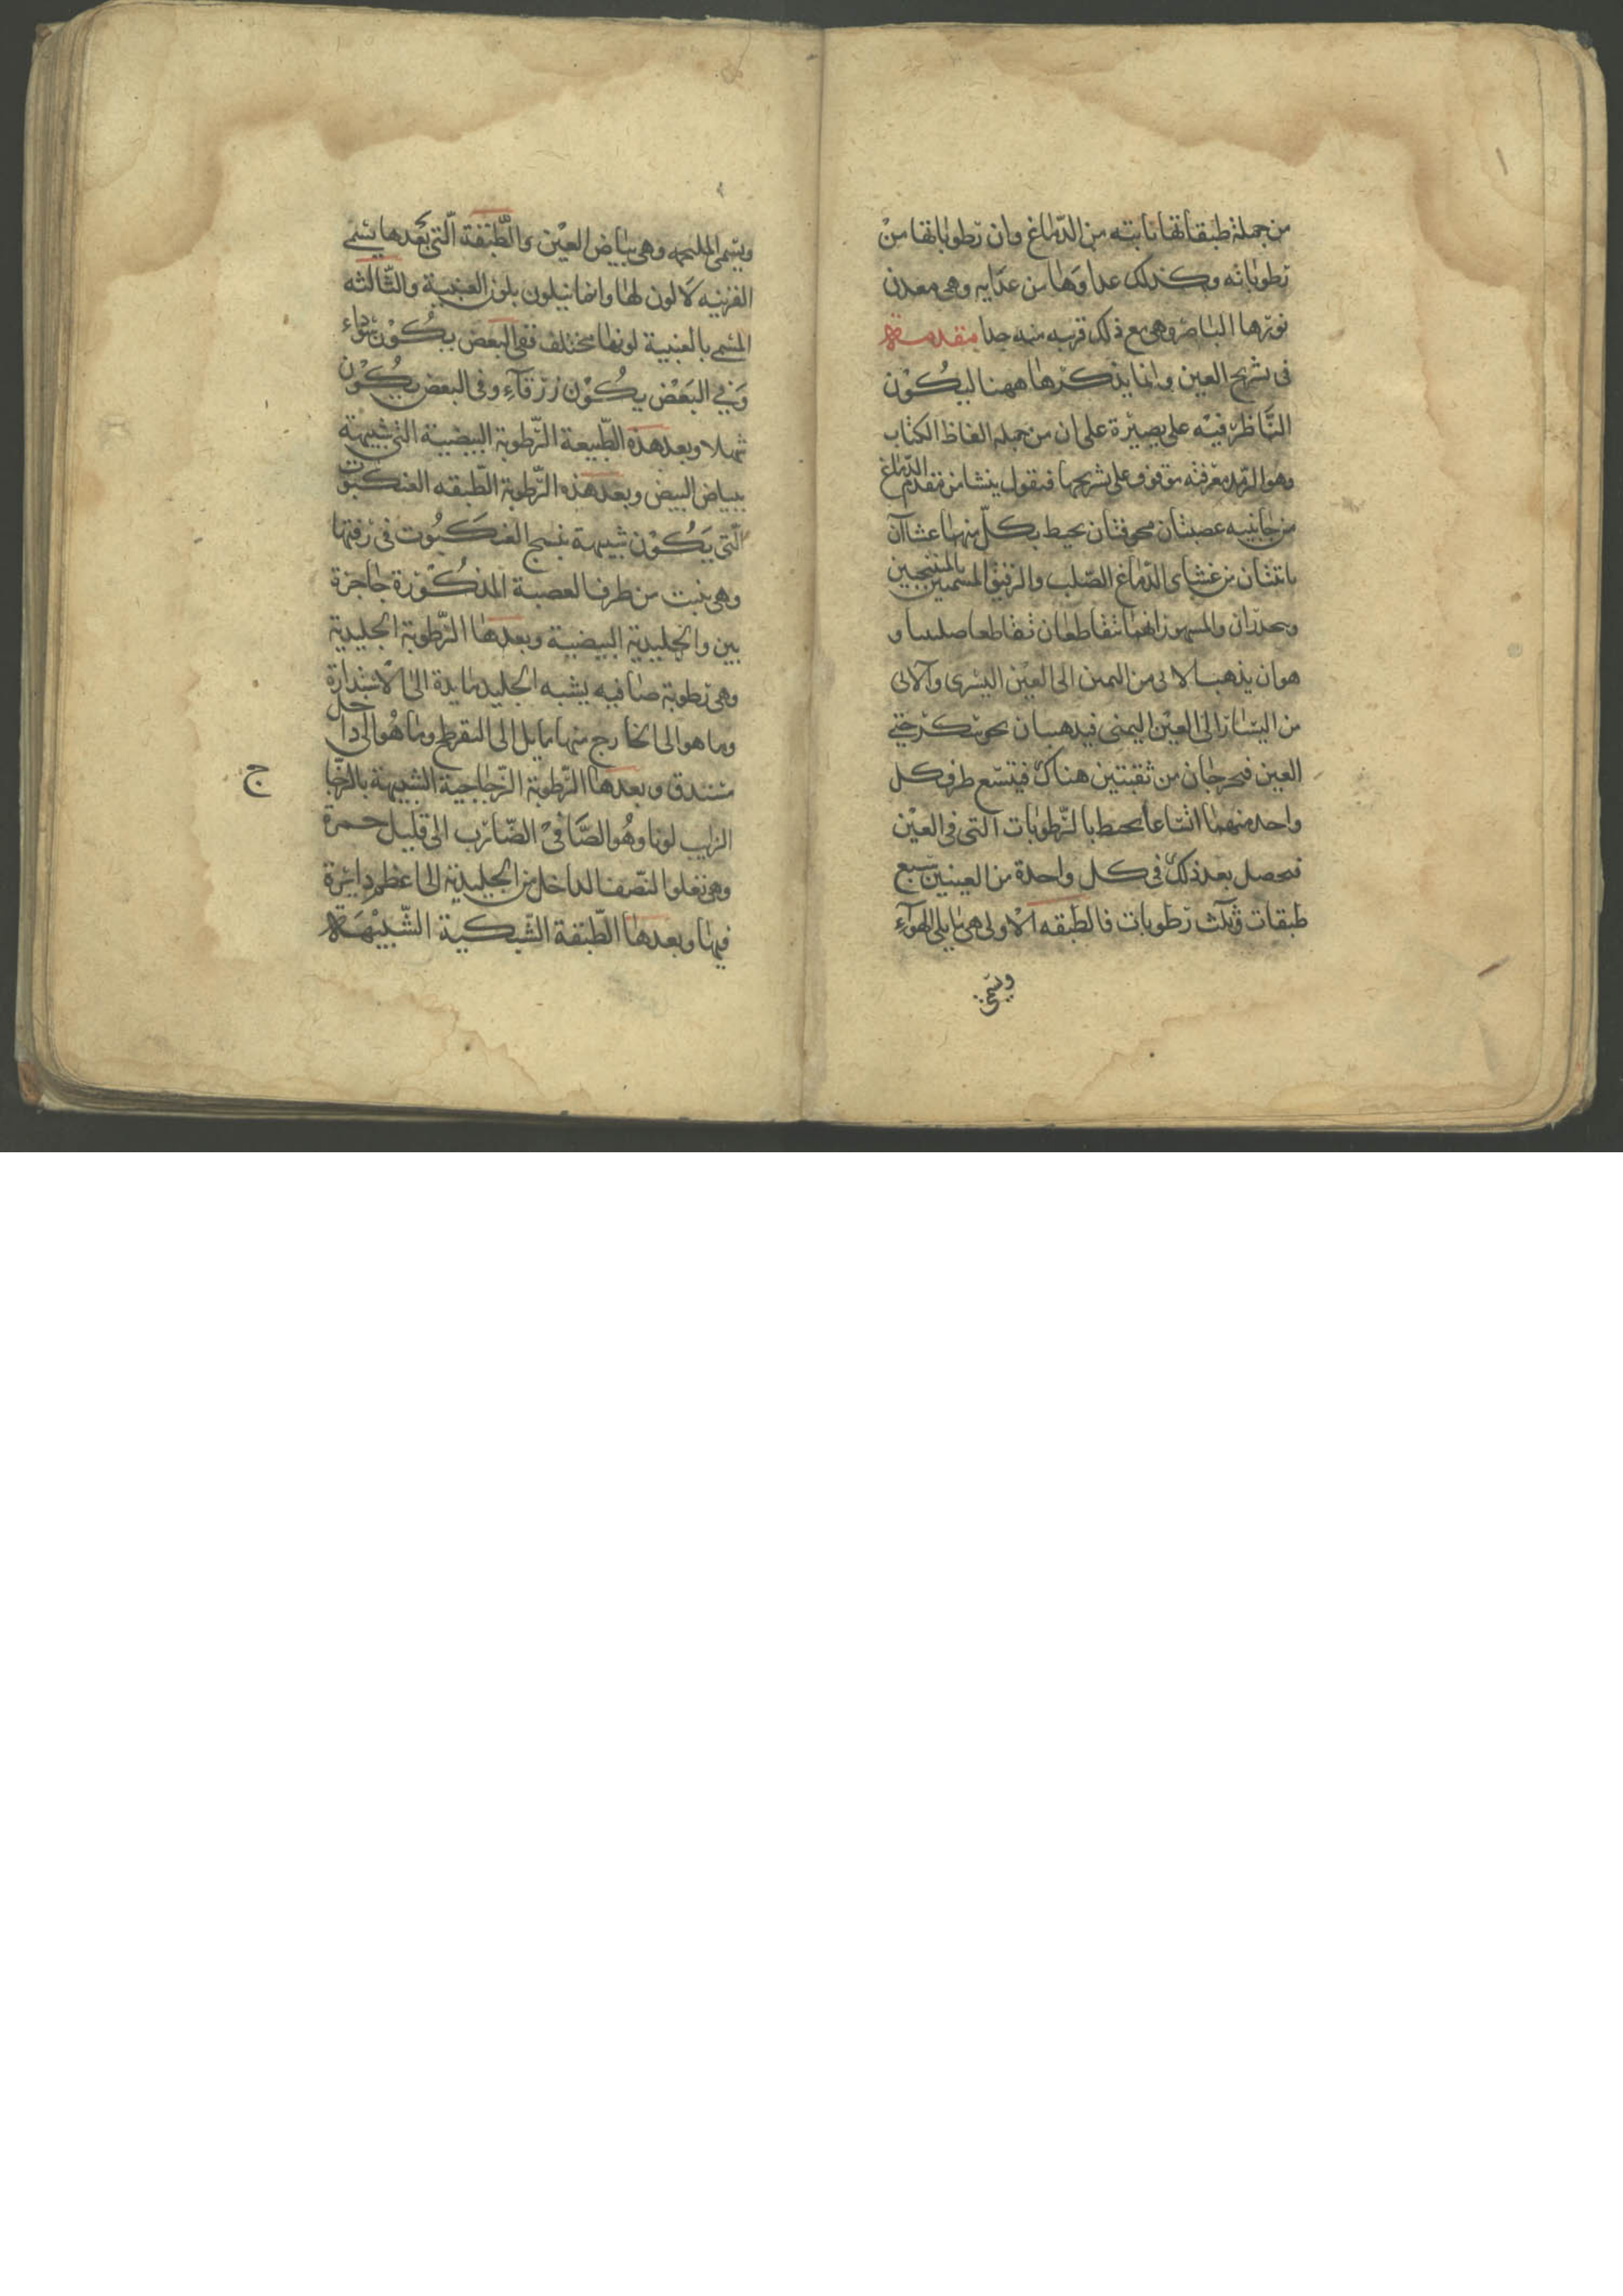 من جملة طبقاتها نابتة من الدّماغ وان رطوباتها من
رطوباته وكذلك غذاوها من غذايه وهى معدن
نورها الباصر وهى مع ذلك قريبه منه جدا مقدمة
فى تشريح العين وانما يذكرها ههنا ليكون
النّاظر فيه على بصيرة على ان من جملة الفاظ الكتاب
وهو الرمد معرفته موقوف على تشريحها فنقول ينشا من مقدم الدّماغ
من جانبيه عصبتان مجوفتان يحيط بكلّ منهما غشاآن
ناتئان من غشاى الدّماغ الصّلب والرقيق المسمين
وينحدران والمشهور انهما تتقاطعان تقاطعا صليبيا و
هو ان يذهب الاتى من اليمين الى العين اليسرى والاتى
من اليسار الى العين اليمنى فيذهبان نحو
العين فيخرجان من ثقبتين هناك فيتسع طرف كل
واحد منهما اتساعا يحيط بالرّطوبات التى فى العين
فيحصل بعد ذلك فى كل واحدة من العينين سبع
طبقات وثلث رطوبات فالطبقه الاولى هى ما يلى الهوآء
وتسمى
وتسمى الملتحمه وهى بياض العين والطّبقة الّتى بعدها يسمى
القرنيه لا لون لها وانما يتلون بلون العنبية والثّالثه
المسمى بالعنبية لونها مختلف ففى البعض يكون سوداء
وفى البعض يكون زرقآء وفى البعض يكون
شهلا وبعد هذه الطّبيعة الرّطوبة البيضية التى شبيهة
ببياض البيض وبعد هذه الرّطوبة الطّبقه العنكبوت
الّتى يكون شبيهة بنسج العنكبوت فى رقتها
وهى ينبت من طرف العصبة المذكورة حاجزة
بين والجليدية البيضية وبعدها الرّطوبة الجليدية
وهى رطوبة صافيه يشبه الجليد مايلة الى الاستدارة
وما هو الى الخارج منها مايل الى التفرطح وما هو الى داخل
مستدق وبعدها الرّطوبة الزّجاجية الشبيهة بالزجا
ج
الذايب لونا وهو الصّافى الضّارب الى قليل حمرة
وهى تعلو النّصف الداخل من الجليدية الى اعظم دايرة
فيها وبعدها الطّبقة الشّبكية الشّبيهة